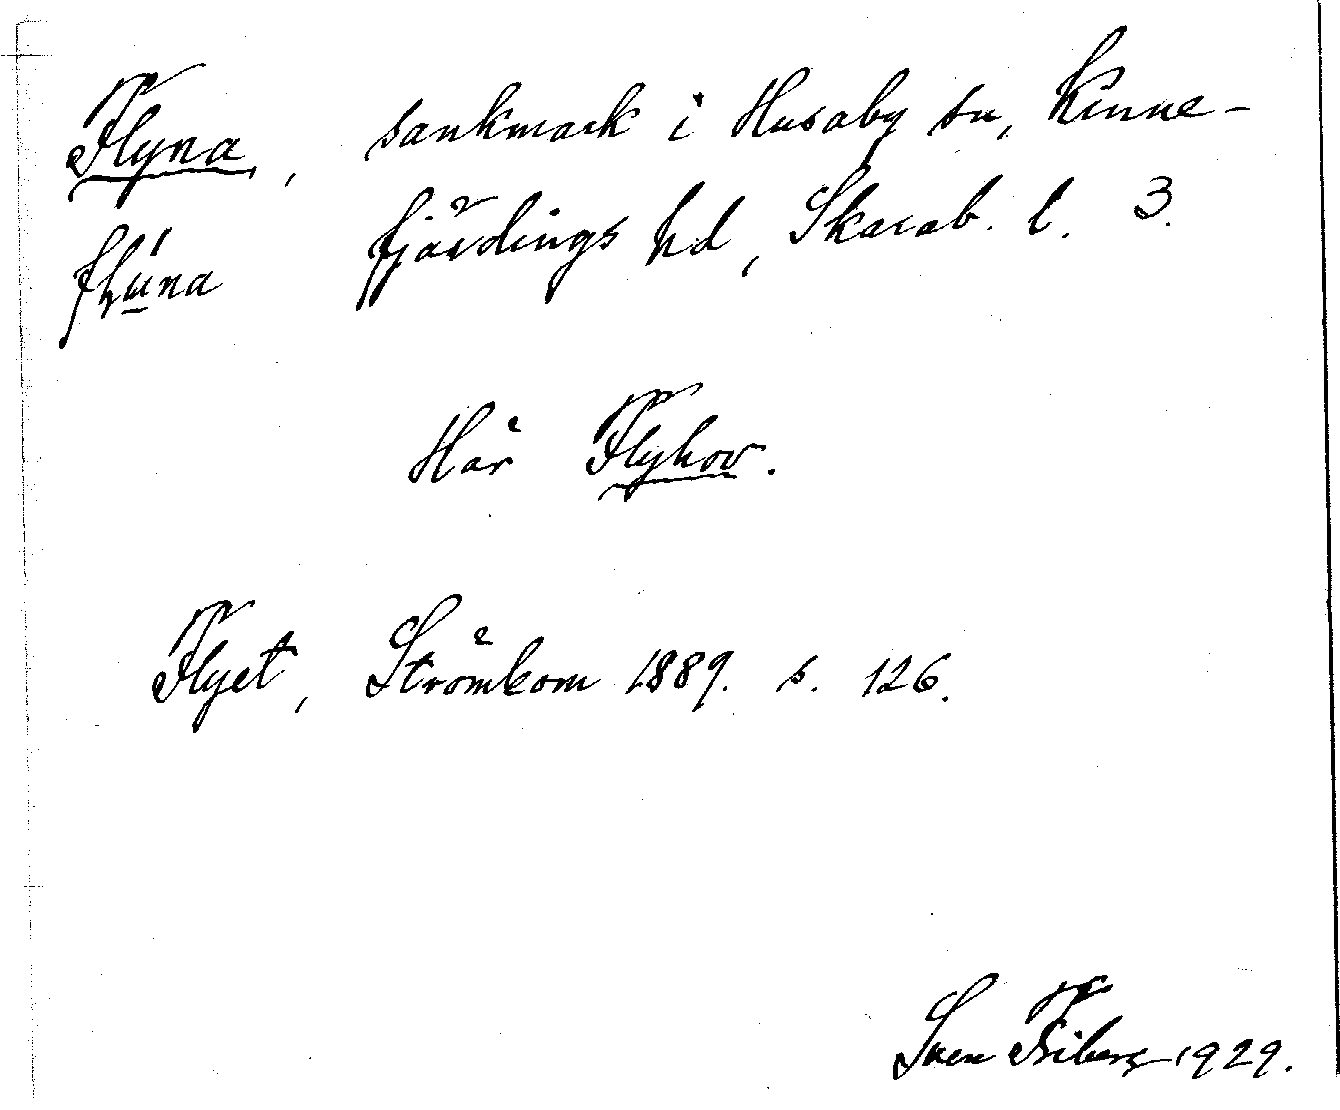 Flyna, sankmark i Husaby sn, Kinne-
flu̲na fjärdings hd, Skarab. l. 3.
Här Flyhov.
Flyet, Strömbom 1889. s. 126.
Sven Friberg 1929.